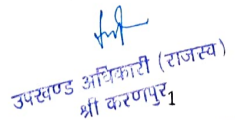 उपखण्ड अधिकारी (राजस्व)
श्री करणपुर1